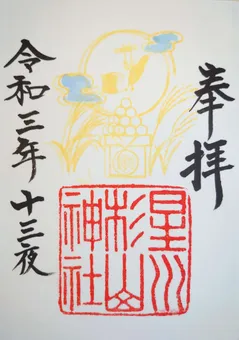 奉拝
星川杉山神社
令和三年 十三夜